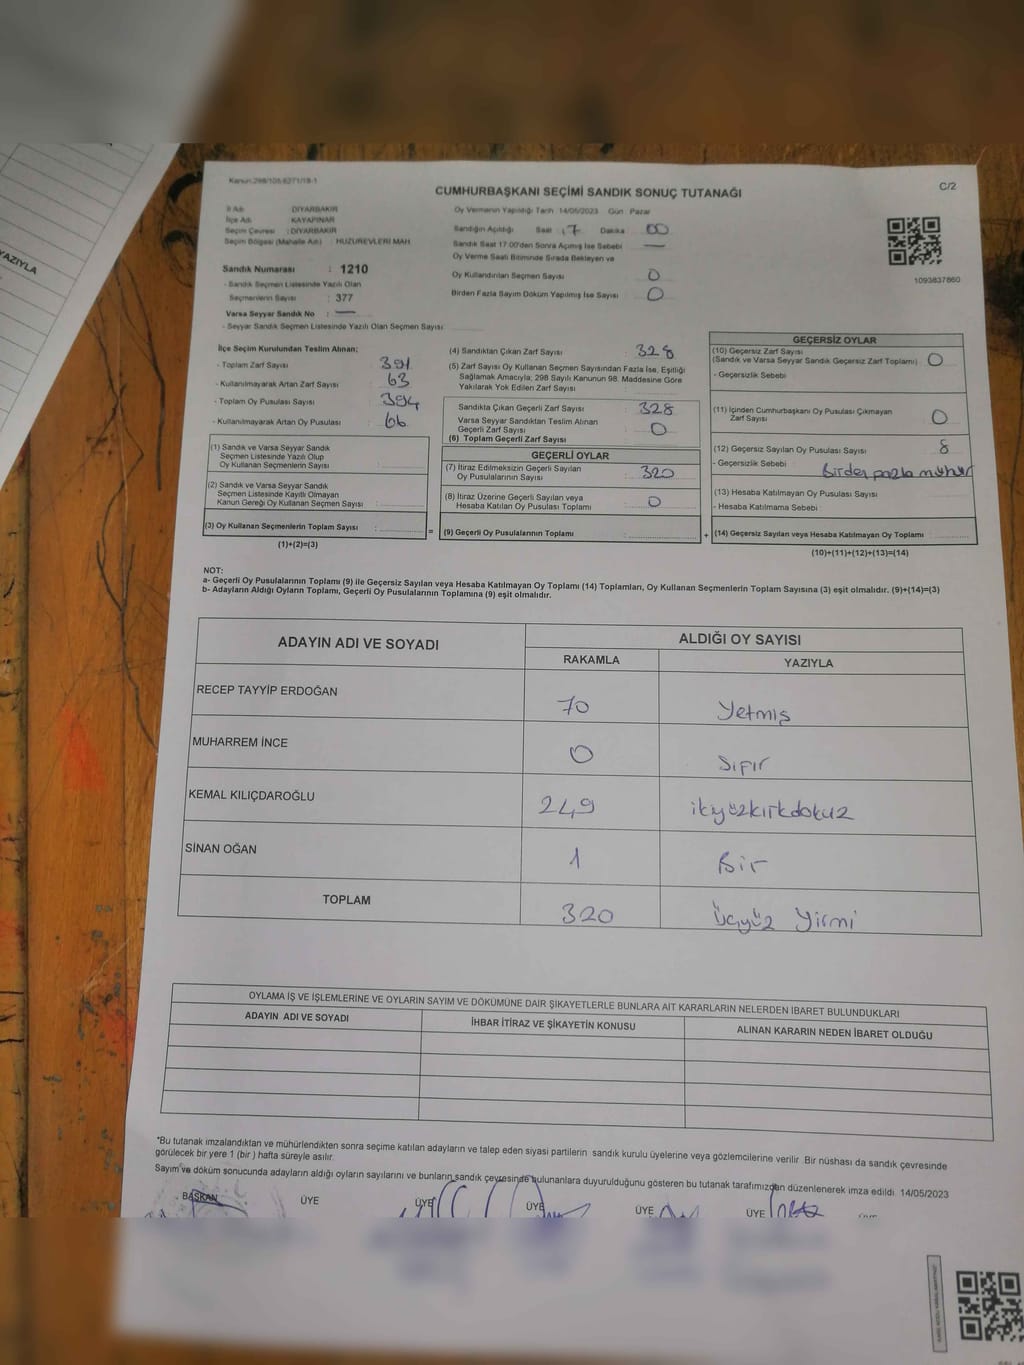 Kanun:298/105,6271/18-1
CUMHURBAŞKANI SEÇİMİ SANDIK SONUÇ TUTANAĞI
C/2
İl Adı : DİYARBAKIR
İlçe Adı : KAYAPINAR
Seçim Çevresi : DİYARBAKIR
Seçim Bölgesi (Mahalle Adı) : HUZUREVLERİ MAH
Sandık Numarası : 1210
- Sandık Seçmen Listesinde Yazılı Olan
Seçmenlerin Sayısı : 377
Varsa Seyyar Sandık No : —
- Seyyar Sandık Seçmen Listesinde Yazılı Olan Seçmen Sayısı
Oy Vermenin Yapıldığı Tarih 14/05/2023 Gün : Pazar
Sandığın Açıldığı Saat : 17 Dakika 00
Sandık Saat 17:00'den Sonra Açılmış İse Sebebi —
Oy Verme Saati Bitiminde Sırada Bekleyen ve
Oy Kullandırılan Seçmen Sayısı 0
Birden Fazla Sayım Döküm Yapılmış İse Sayısı : 0
1093837860
İlçe Seçim Kurulundan Teslim Alınan;
- Toplam Zarf Sayısı : 391
- Kullanılmayarak Artan Zarf Sayısı : 63
- Toplam Oy Pusulası Sayısı : 394
- Kullanılmayarak Artan Oy Pusulası : 66
(1) Sandık ve Varsa Seyyar Sandık
Seçmen Listesinde Yazılı Olup
Oy Kullanan Seçmenlerin Sayısı :
(2) Sandık ve Varsa Seyyar Sandık
Seçmen Listesinde Kayıtlı Olmayan
Kanun Gereği Oy Kullanan Seçmen Sayısı :
(3) Oy Kullanan Seçmenlerin Toplam Sayısı :
(1)+(2)=(3)
(4) Sandıktan Çıkan Zarf Sayısı : 328
(5) Zarf Sayısı Oy Kullanan Seçmen Sayısından Fazla İse, Eşitliği
Sağlamak Amacıyla; 298 Sayılı Kanunun 98. Maddesine Göre
Yakılarak Yok Edilen Zarf Sayısı :
Sandıkta Çıkan Geçerli Zarf Sayısı : 328
Varsa Seyyar Sandıktan Teslim Alınan
Geçerli Zarf Sayısı : 0
(6) Toplam Geçerli Zarf Sayısı
GEÇERLİ OYLAR
(7) İtiraz Edilmeksizin Geçerli Sayılan
Oy Pusulalarının Sayısı : 320
(8) İtiraz Üzerine Geçerli Sayılan veya
Hesaba Katılan Oy Pusulası Toplamı : 0
= (9) Geçerli Oy Pusulalarının Toplamı :
GEÇERSİZ OYLAR
(10) Geçersiz Zarf Sayısı
(Sandık ve Varsa Seyyar Sandık Geçersiz Zarf Toplamı) : 0
- Geçersizlik Sebebi :
(11) İçinden Cumhurbaşkanı Oy Pusulası Çıkmayan
Zarf Sayısı : 0
(12) Geçersiz Sayılan Oy Pusulası Sayısı : 8
- Geçersizlik Sebebi : Birden pazla mühür
(13) Hesaba Katılmayan Oy Pusulası Sayısı :
- Hesaba Katılmama Sebebi :
+ (14) Geçersiz Sayılan veya Hesaba Katılmayan Oy Toplamı :
(10)+(11)+(12)+(13)=(14)
NOT:
a- Geçerli Oy Pusulalarının Toplamı (9) ile Geçersiz Sayılan veya Hesaba Katılmayan Oy Toplamı (14) Toplamları, Oy Kullanan Seçmenlerin Toplam Sayısına (3) eşit olmalıdır. (9)+(14)=(3)
b- Adayların Aldığı Oyların Toplamı, Geçerli Oy Pusulalarının Toplamına (9) eşit olmalıdır.
ADAYIN ADI VE SOYADI ALDIĞI OY SAYISI
RAKAMLA YAZIYLA
RECEP TAYYİP ERDOĞAN 70 Yetmiş
MUHARREM İNCE 0 Sıfır
KEMAL KILIÇDAROĞLU 249 ikiyüzkırkdokuz
SİNAN OĞAN 1 Bir
TOPLAM 320 Üçyüz Yirmi
OYLAMA İŞ VE İŞLEMLERİNE VE OYLARIN SAYIM VE DÖKÜMÜNE DAİR ŞİKAYETLERLE BUNLARA AİT KARARLARIN NELERDEN İBARET BULUNDUKLARI
ADAYIN ADI VE SOYADI İHBAR İTİRAZ VE ŞİKAYETİN KONUSU ALINAN KARARIN NEDEN İBARET OLDUĞU
*Bu tutanak imzalandıktan ve mühürlendikten sonra seçime katılan adayların ve talep eden siyasi partilerin sandık kurulu üyelerine veya gözlemcilerine verilir. Bir nüshası da sandık çevresinde
görülecek bir yere 1 (bir) hafta süreyle asılır.
Sayım ve döküm sonucunda adayların aldığı oyların sayılarını ve bunların sandık çevresinde bulunanlara duyurulduğunu gösteren bu tutanak tarafımızdan düzenlenerek imza edildi. 14/05/2023
BAŞKAN ÜYE ÜYE ÜYE ÜYE ÜYE
YAZIYLA